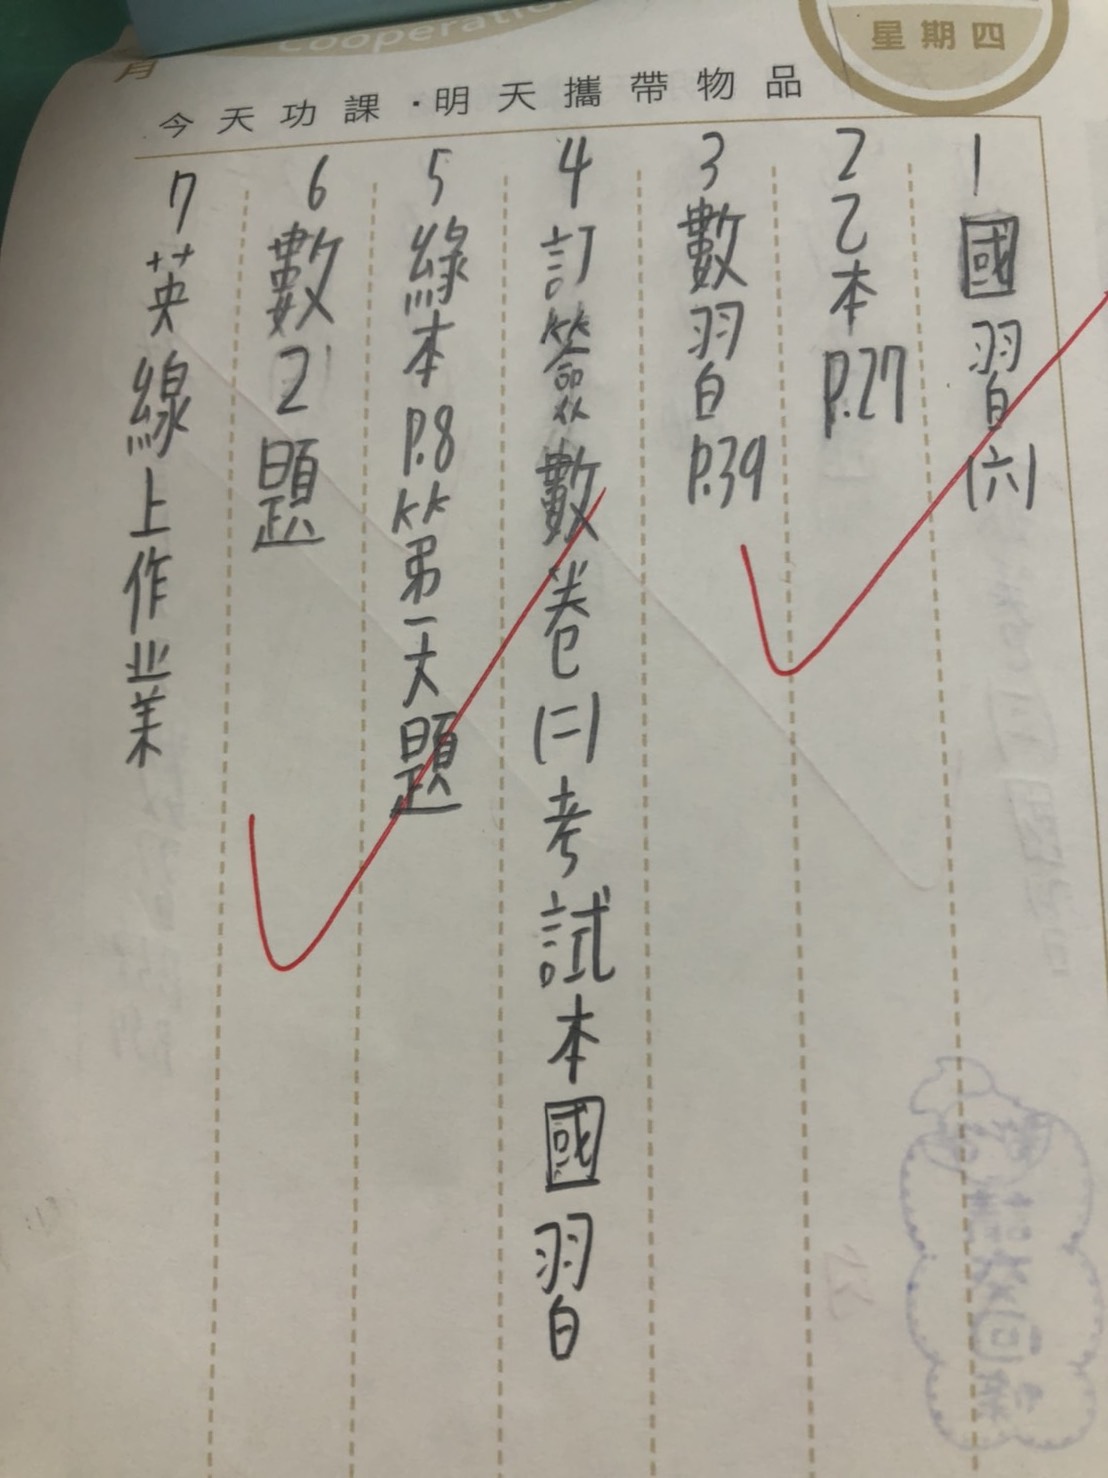 Cooperation
星期四
月
今天功課·明天攜帶物品
1國習(六)
2乙本P.27
3數習P.39
4訂簽數卷(二)考試本國習
5綠本P.8第一大題
6數2題
7英線上作業